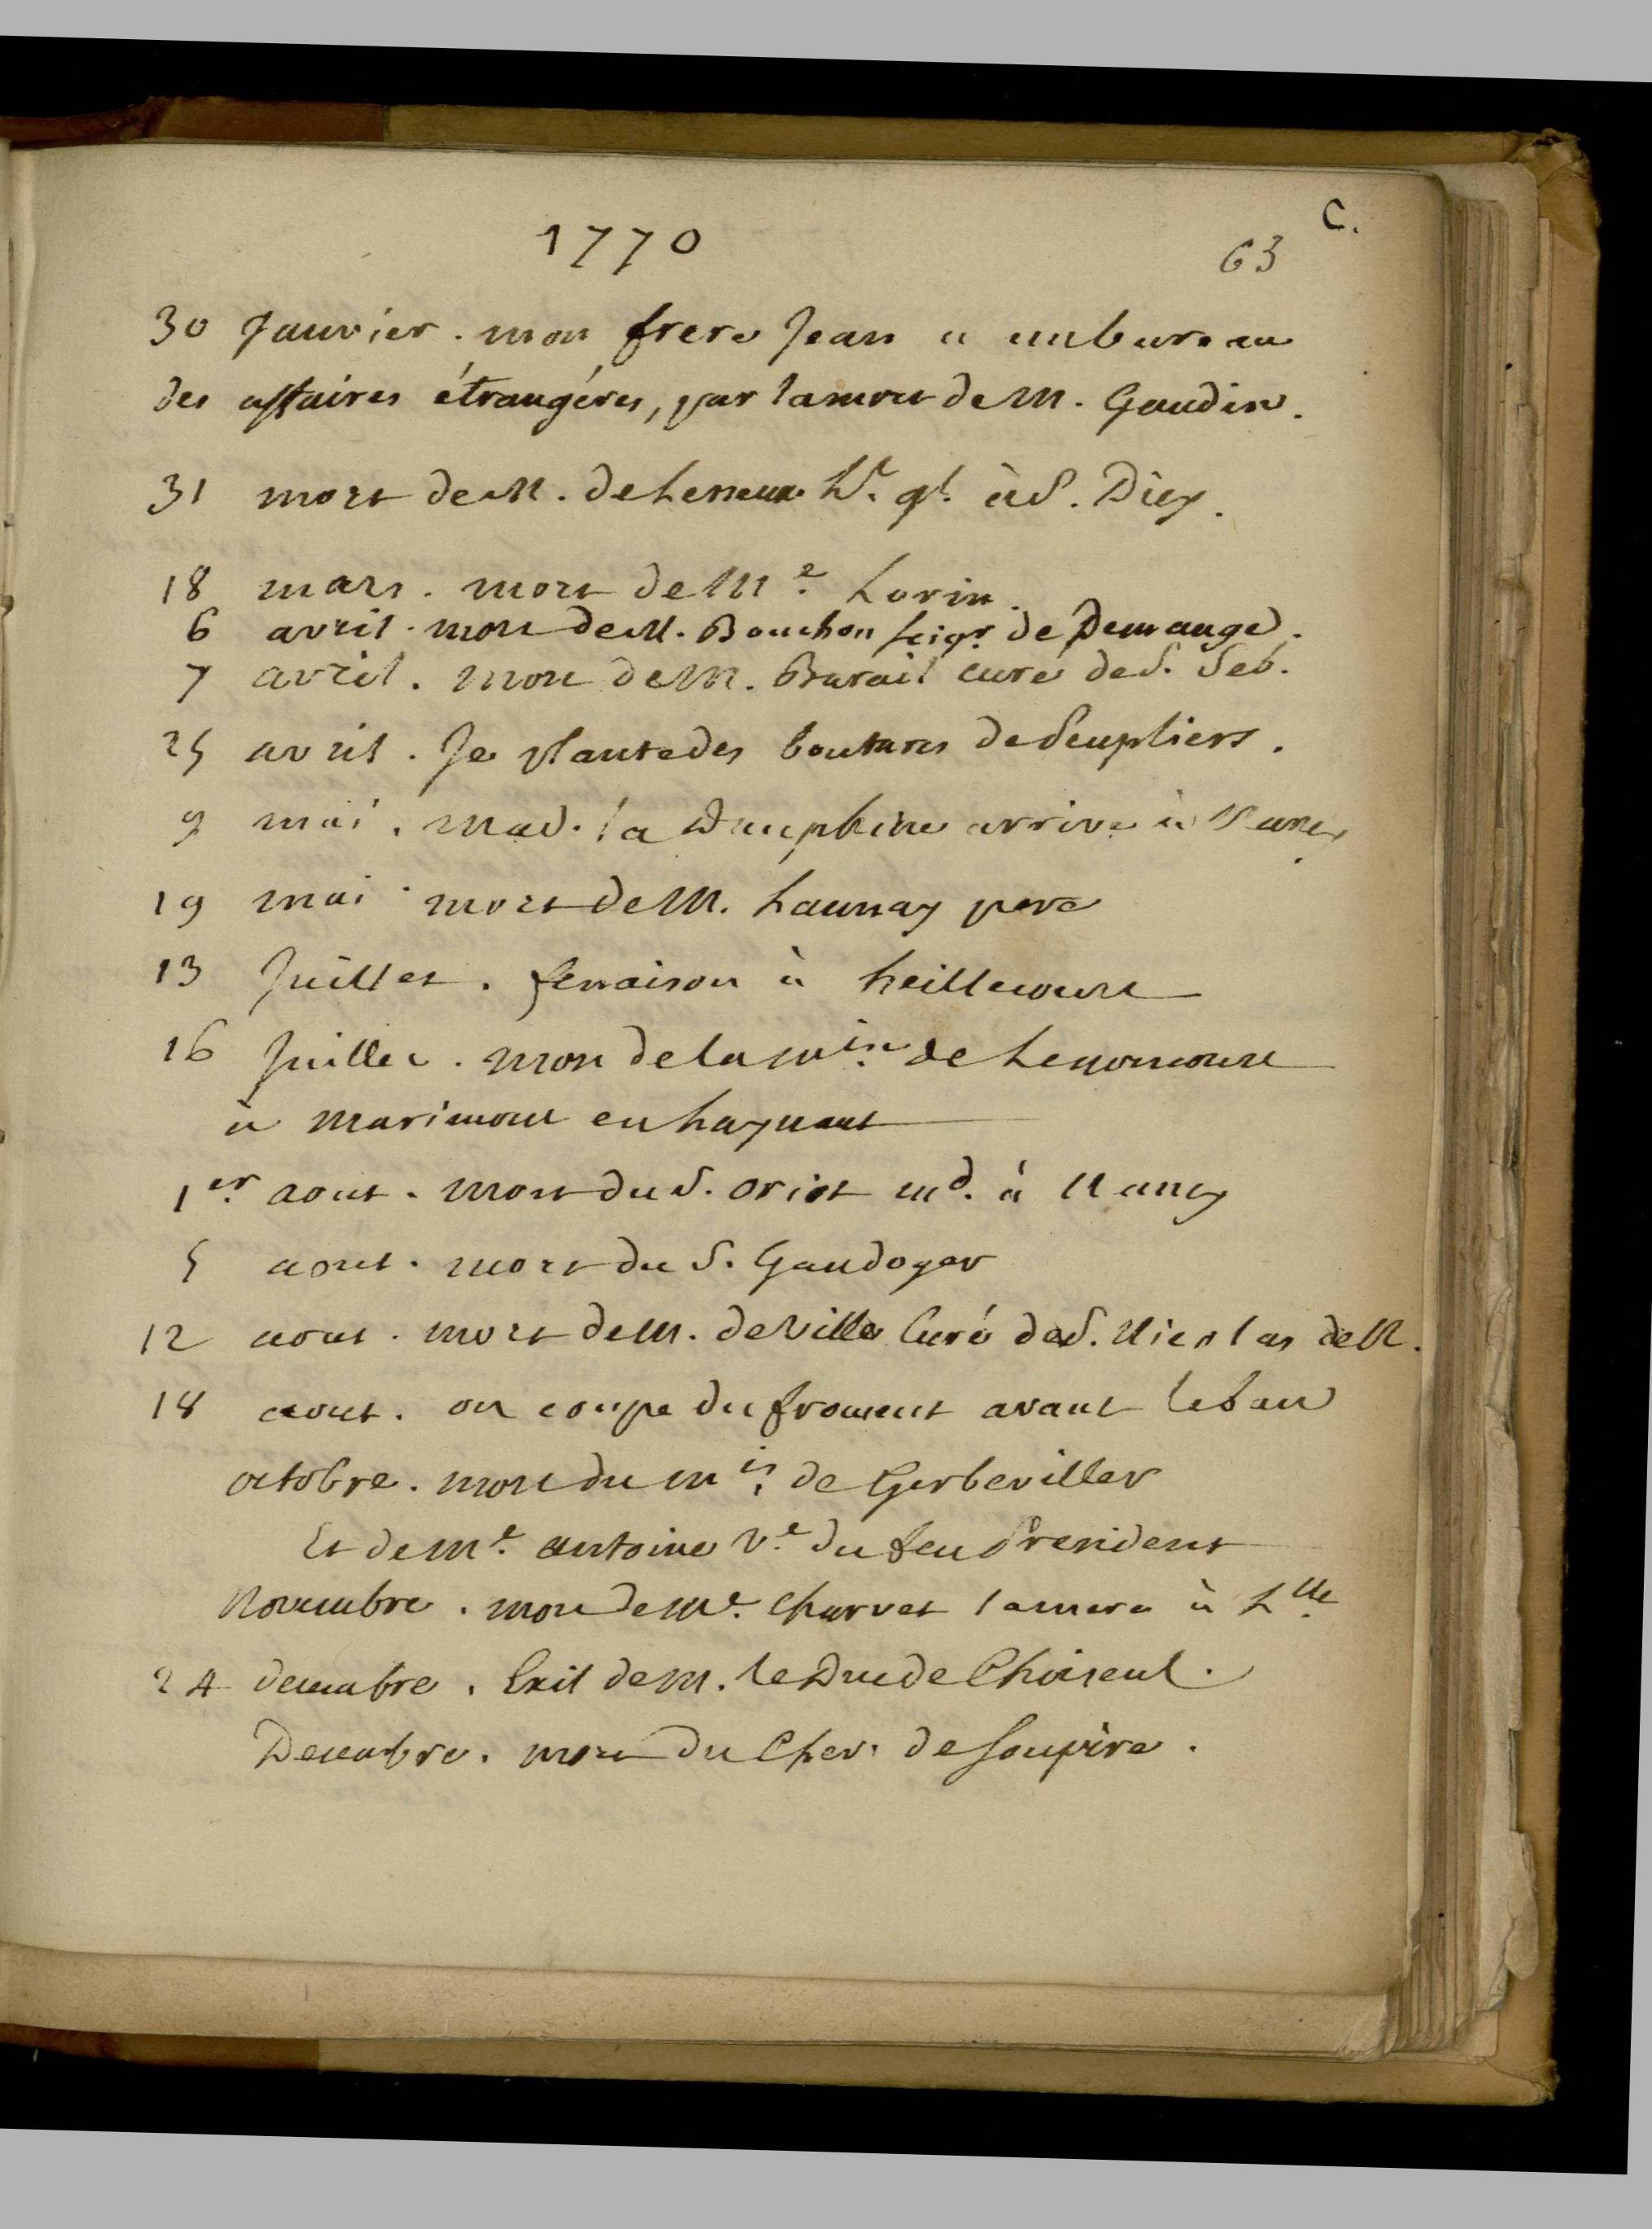 C.
1770
63
30 Janvier. mon frere Jean a un bureau
des affaires étrangéres, par la mort de M. Gaudin.
31 mort de M. de Lesseux Lt. gl. à S. Diey.
18 mars. mort de Me. Lorin.
6 avril. mort de M. Bouchon seigr. de Demange.
7 avril. mort de M. Burail curé de S. Seb.
25 avril. Je plante des boutures de Peupliers.
9 mai. Mad. la Dauphine arrive à Nancy.
19 mai. mort de M. Launay pere
13 Juillet. fenaison à heillecourt
16 Juillet. mort de la mise. de Lenoncourt
à Marimont en haynaut
1er. aout. mort du S. oriot md. à Nancy
5 aout. mort du S. Gaudoger
12 aout. mort de M. de Ville Curé de S. Nicolas de N.
18 aout. on coupe du froment avant le ban
octobre. mort du mis. de Gerbeviller
Et de Me. antoine ve. du feu President
Novembre. mort de Me. Charvet la mere à Llle.
24 decembre. Exil de M. le Duc de Choiseul.
Decembre. mort du Chev. de Soupire.